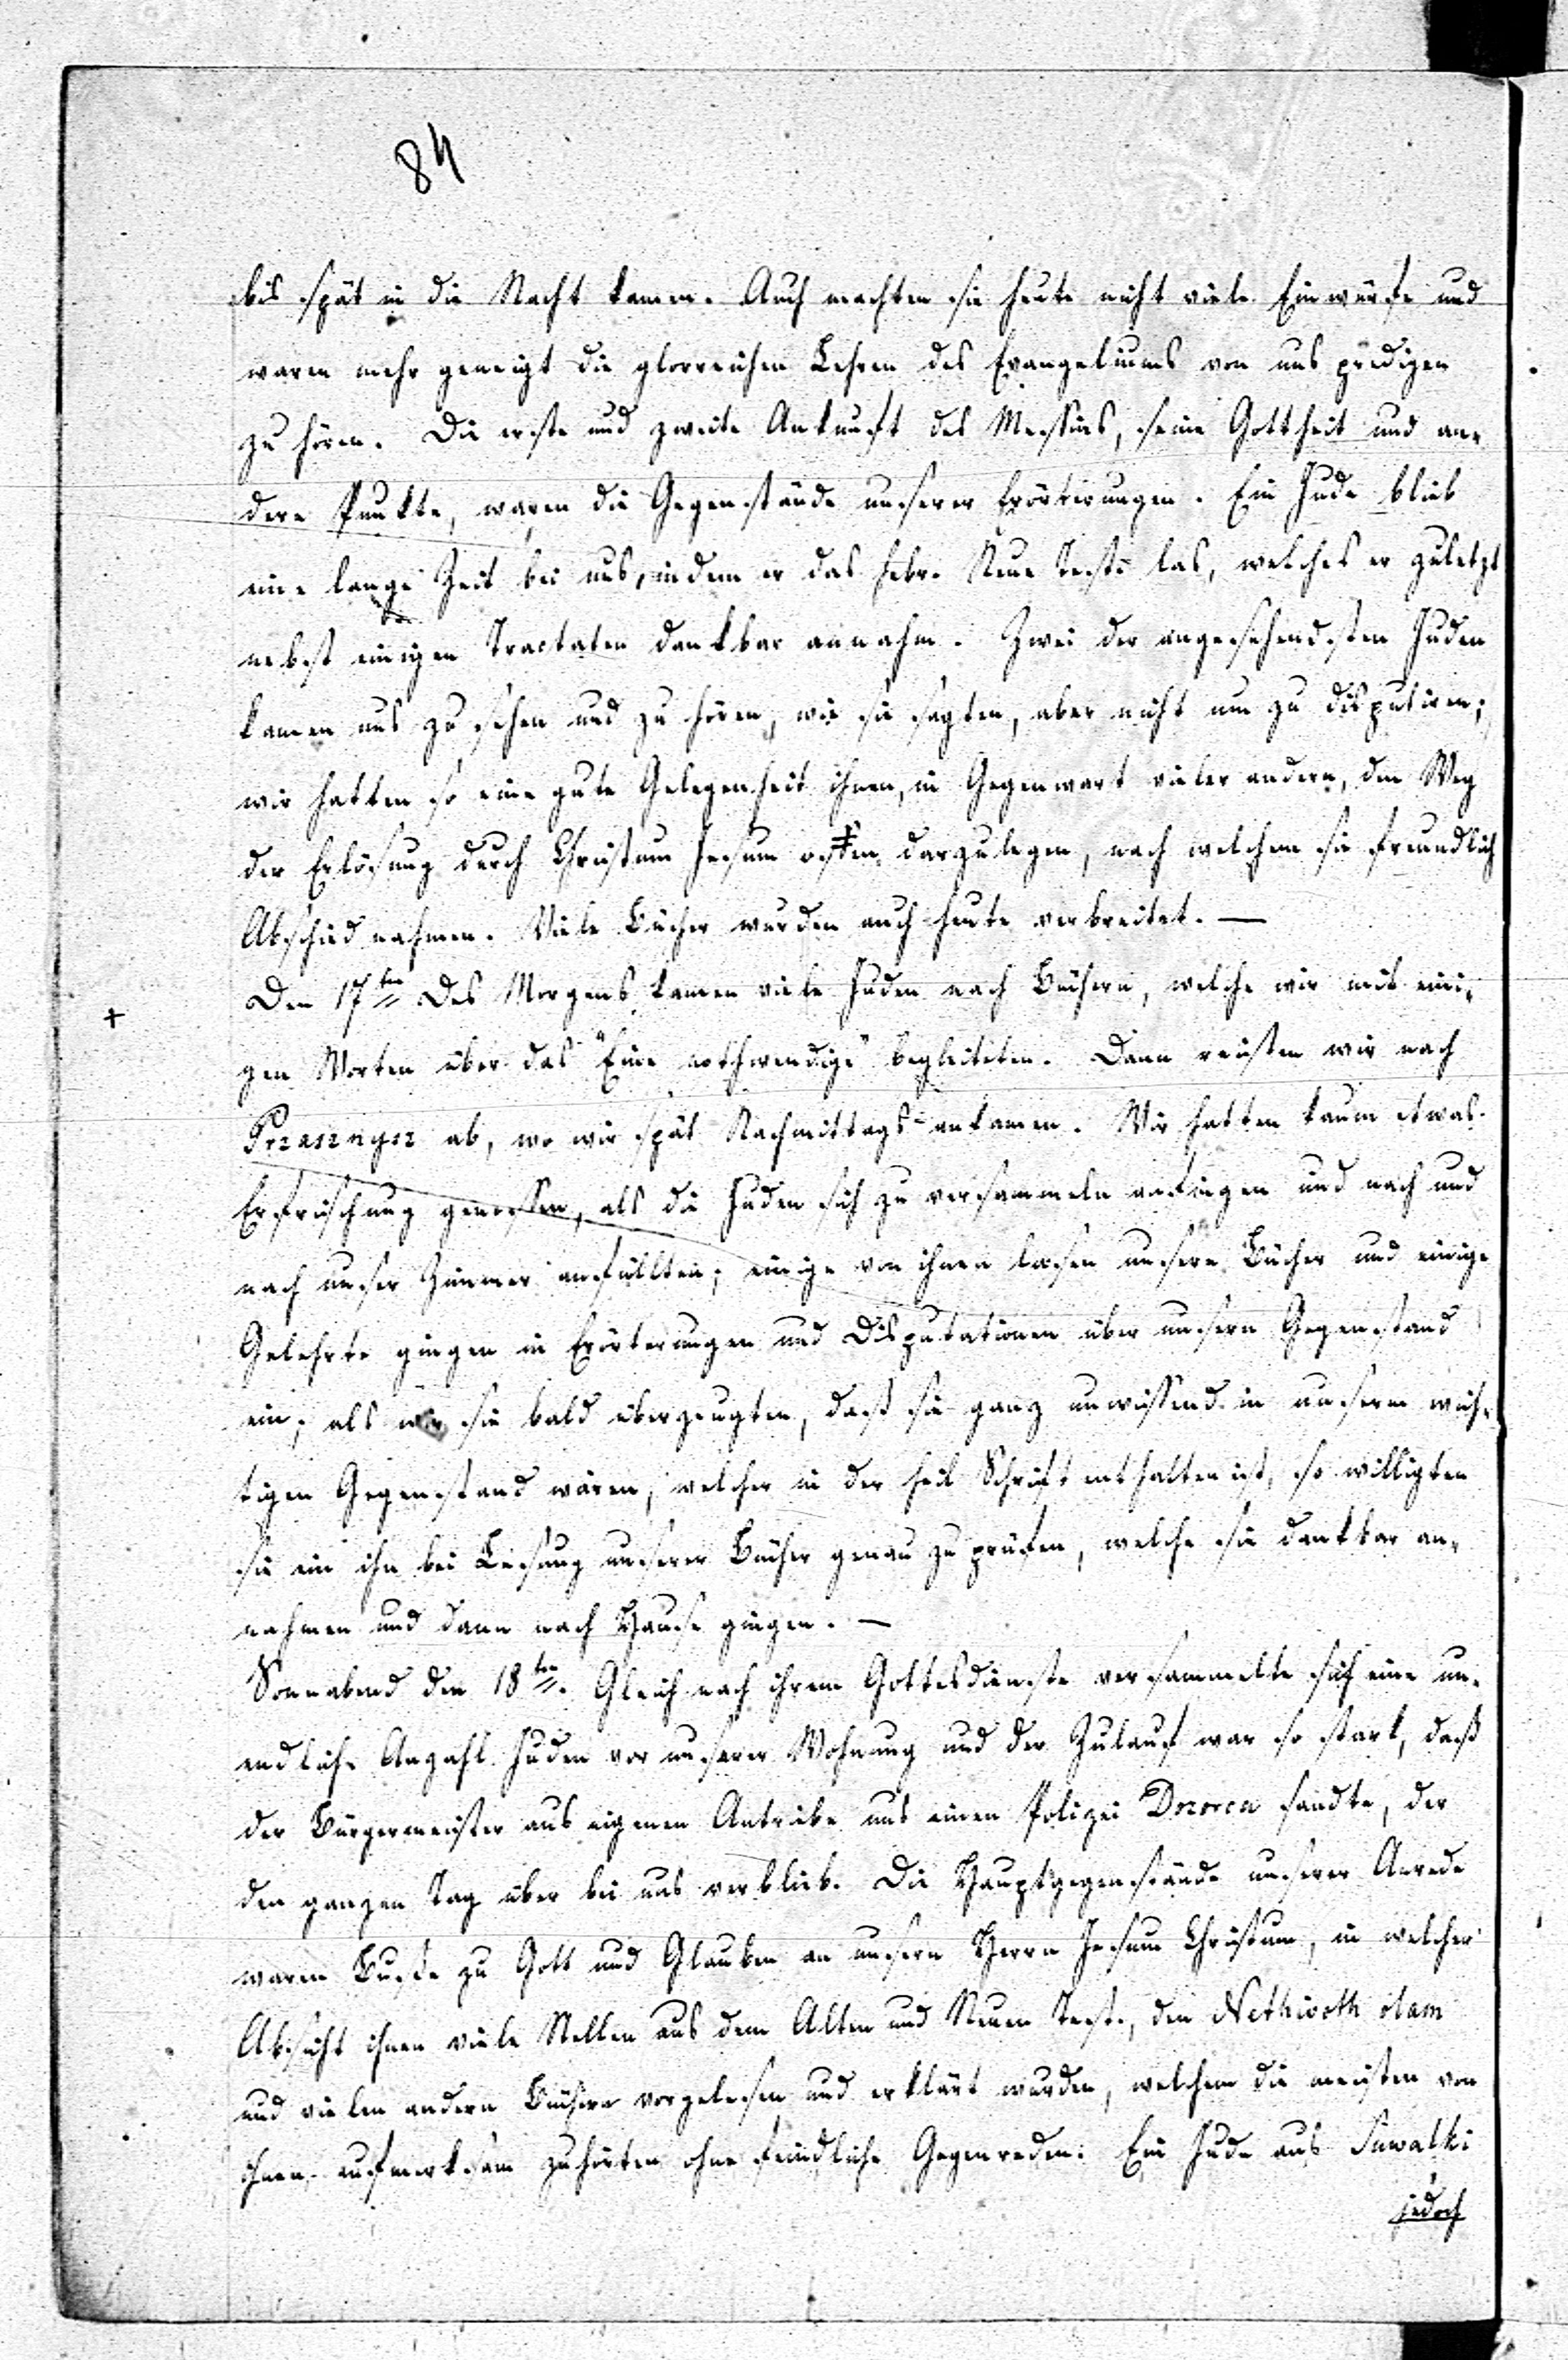 84
bis spät in die Nacht kamen. Auch machten sie heute nicht viele Einwürfe und
waren mehr geneigt die glorreichen Lehren des Evangeliums von uns predigen
zu hören. Die erste und zweite Ankunft des Messias, seine Gottheit und an-
dere Punkte, waren die Gegenstände unserer Erörterungen. Ein Jude blieb
eine lange Zeit bei uns, indem er das hebr. Neue Test. las, welches er zuletzt
nebst einigen Tractaten dankbar annahm. Zwei der angesehendsten Juden
kamen uns zu sehen und zu hören, wie sie sagten, aber nicht um zu disputiren;
wir hatten so eine gute Gelegenheit ihnen, in Gegenwart vieler andern, den Weg
der Erlösung durch Christum Jesum offen darzulegen, nach welchem sie freundlich
Abschied nahmen. Viele Bücher wurden auch heute verbreitet. —
Den 17ten Des Morgens kamen viele Juden nach Büchern, welche wir mit eini-
+
gen Worten über das "Eine nothwendige" begleiteten. Dann reisten wir nach
Przasznysz ab, wo wir spät Nachmittags ankamen. Wir hatten kaum etwas
Erfrischung genossen, als die Juden sich zu versammeln anfingen und nach und
nach unser Zimmer anfüllten; einige von ihnen lasen unsere Bücher und einige
Gelehrte gingen in Erörterungen und Disputationen über unsern Gegenstand
ein; als wir sie bald überzeugten, daß sie ganz unwissend in unserem wich-
tigen Gegenstand wären, welcher in der heil Schrift enthalten ist, so willigten
sie ein ihn bei Lesung unserer Bücher genau zu prüfen, welche sie dankbar an-
nahmen und dann nach Hause gingen. —
Sonnabend den 18ten. Gleich nach ihrem Gottesdienste versammelte sich eine un-
endliche Anzahl Juden vor unserer Wohnung und der Zulauf war so stark, daß
der Bürgermeister aus eigenen Antriebe uns einen Polizei Dozorca sandte, der
den ganzen Tag über bei uns verblieb. Die Hauptgegenstände unserer Anrede
waren Buße zu Gott und Glauben an unsern Herrn Jesum Christum, in welcher
Absicht ihnen viele Stellen aus dem Alten und Neuen Test., den Nethivoth olam
und vielen andern Büchern vorgelesen und erklärt wurden, welchem die meisten von
ihnen aufmerksam zuhörten ohne feindliche Gegenreden. Ein Jude aus Suwalki
jedoch